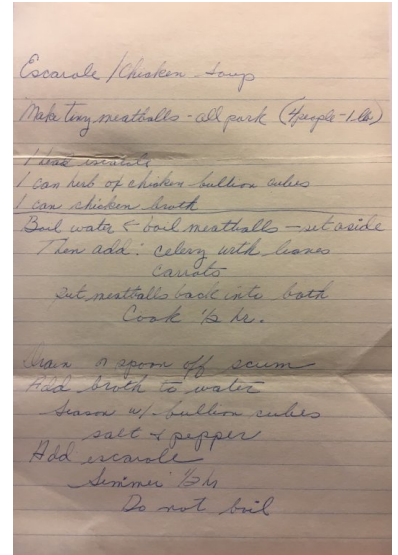 Escarole / Chicken Soup
Make tiny meatballs - all pork (4 people - 1 lb)
1 head escarole
1 can herb of chicken bullion cubes
1 can chicken broth
Boil water & boil meatballs - set aside
Then add: celery with leaves
carrots
put meatballs back into both
Cook 1/2 hr.
Drain or spoon off scum
Add broth to water
Season w/ bullion cubes
salt & pepper
Add escarole
Simmer 1/2 hr
Do not boil